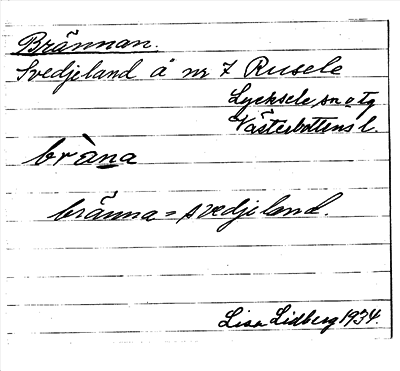 Brännan.
Svedjeland å nr 7 Rusele
Lycksele sn o tg
Västerbottens l.
bràna
bränna = svedjeland.
Lisa Lidberg 1934.